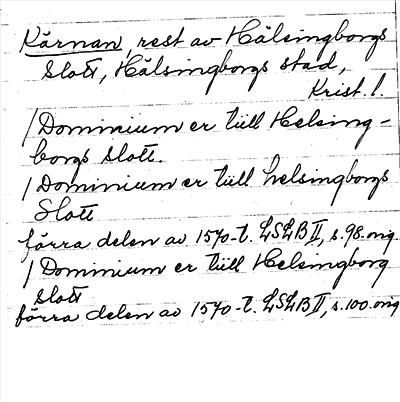 Kärnan, rest av Hälsingborgs
slott, Hälsingborgs stad,
Krist. l.
/Dominium er tiill Helsing-
borgs slott.
/Dominium er tiill helsingborgs
Slott
förra delen av 1570-t. LSLB II, s. 98. orig.
/Dominium er tiill Helsingborg
slott
förra delen av 1570-t. LSLB II, s. 100. orig